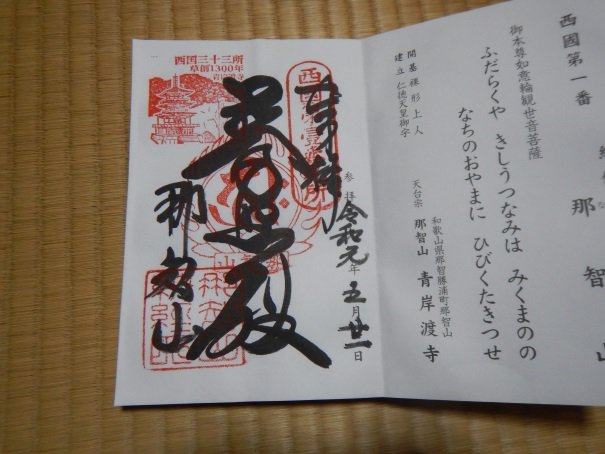 西國第一番
那智山
御本尊如意輪観世音菩薩
ふだらくや きしうつなみは みくまのの
なちのおやまに ひびくたきつせ
開基裸形上人
建立 仁徳天皇御宇
和歌山県那智勝浦町那智山
天台宗 那智山 青岸渡寺
西国三十三所
草創1300年
青岸渡寺
奉拝
参拝 令和元年五月廿一日
普照殿
那智山